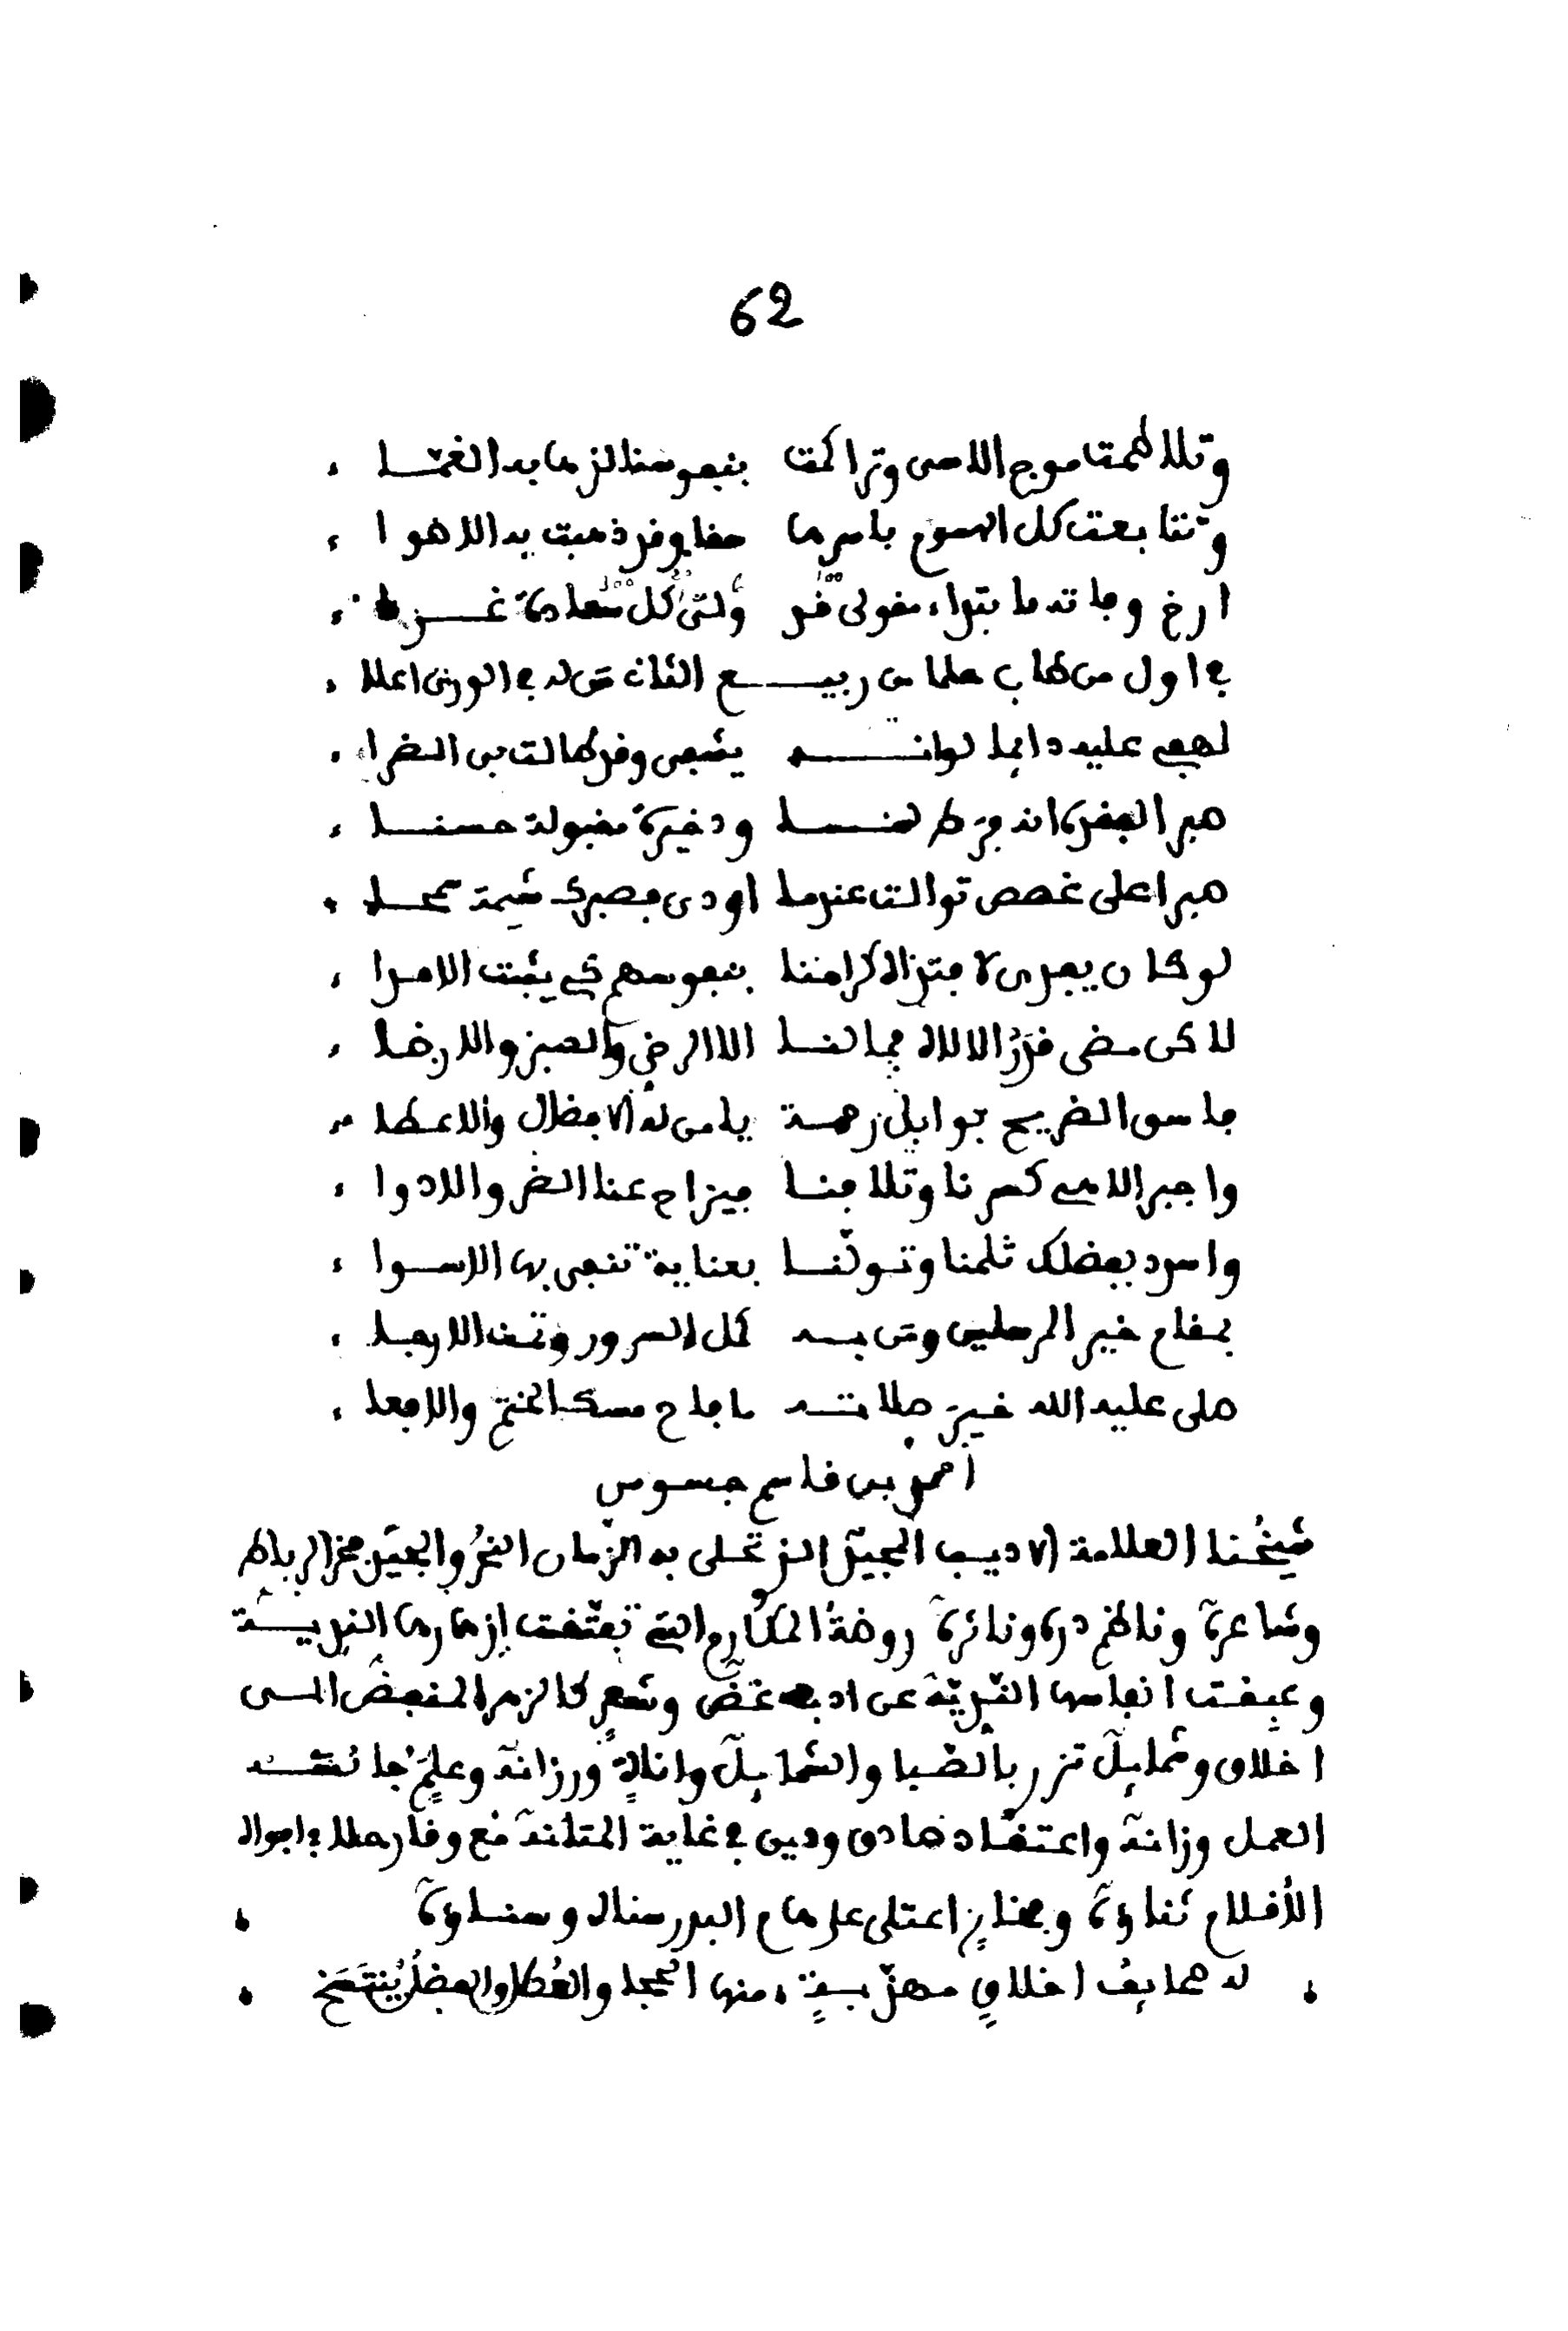 62
وتلاطمت امواج الاسى وتراكمت بنفوسنا لزهابه الغمـا
وتتابعت كل الهموم باسرها حقا وقد ذهبت به الاهوا
ارخ وفاته ما تراه مقولي قد ولتى كل سعادة غـرا
في اول من عام من ربيـع الثان من له في الورى اعلا
لهفي عليه دايما لوانـه يشجى وقد طالت بي الضرا
صبرا لفقده انه فرط لنـا وذخيرة مقبولة حسنـا
صبرا على غصص توالت عندما اودى فصبرك شيمة سمحـا
لو كان يفدى لافتداه كرامنا بنفوسهم كي يثبت الامرا
لاكن مضى قدر الالاه فما لنـا الا الرضى والصبر والارضـا
فاسق الضريح بوابل رحمة يا من له الافضال والاعطا
واجبر الاهي كسرنا وتلافنـا فيزاح عنا الضر والادوا
واسدد بفضلك ثلمنا وتولنـا بعناية تنجى بها الاسـوا
بمقام خير المرسلين ومن بـه كمل السرور وتمت الارجـا
صلى عليه الله خير صلاتـه ما فاح مسك الختم والافعا
احمد بن قاسم جسوس
شيخنا العلامة الاديب المجيد الذ تحلى به الزمان النحر والجيد فخر الرباط
وشاعره وناظم دره وناثره روضة المكارم التي تفتقت ازهارها النديـة
وعبقت انفاسها النديّة عن ادب غضّ وشعر كالزهر المنفض الـى
اخلاق وشمايل تزر بالصّبا والشمايل واناة ورزانة وعلم جا نفـه
العمل وزانه واعتقاد صادق ودين في غاية المتانة مع وقار ملا افواه
الأقلام ثناؤه ومقام اعتلى على هام البدر سناه وسنـاؤه
له صحايف اخلاق مهذّبـة، منها الحجا والعُلا والفضلُ يُنتسَخ